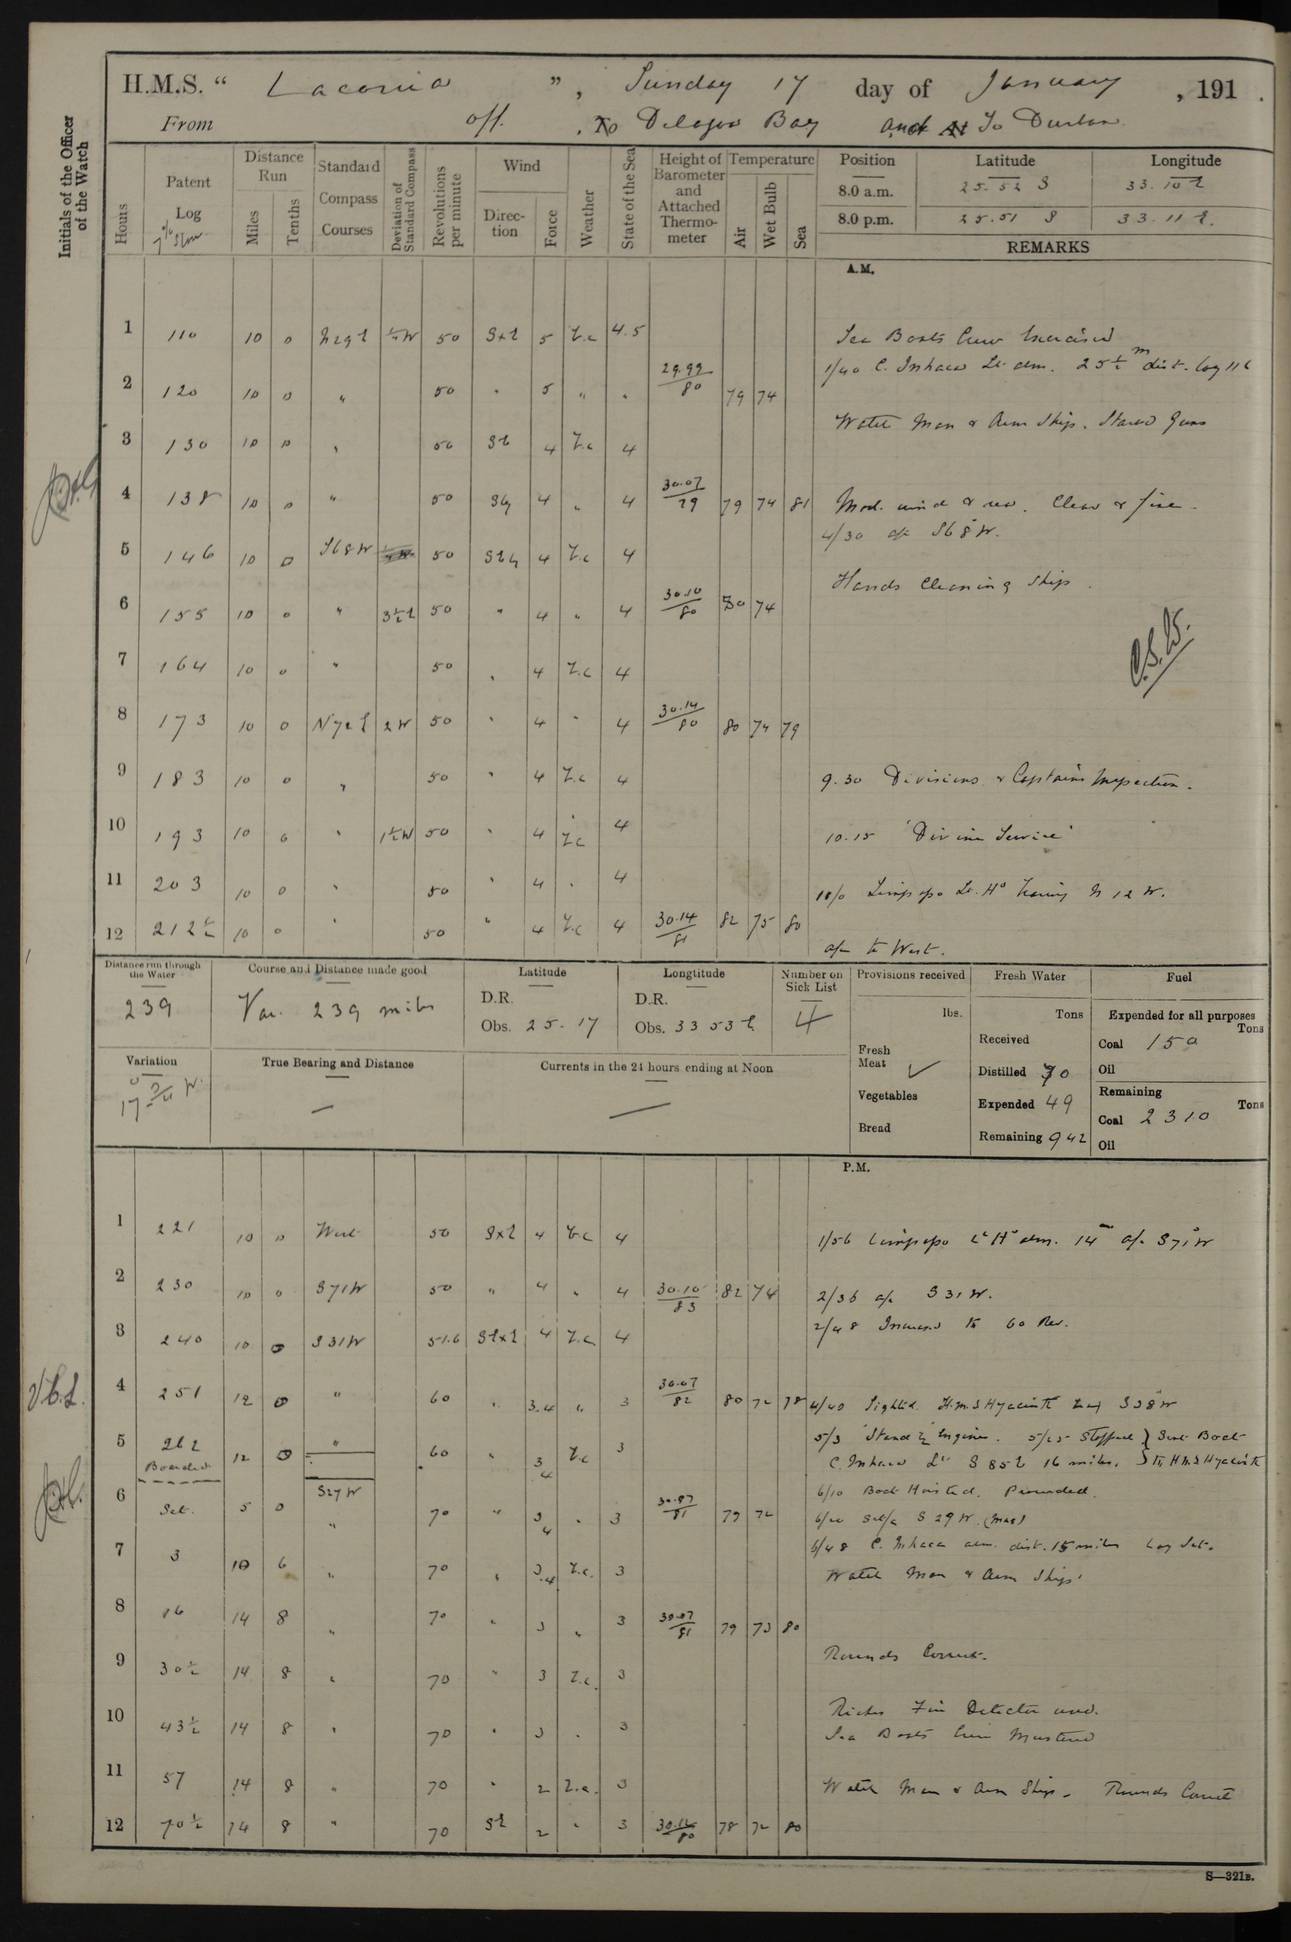 H.M.S. “ Laconia ”, Sunday 17 day of January , 191 .
From off. , To Delagoa Bay and At To Durban
Initials of the Officer of the Watch
Hours
Patent Log
7% Slow
Distance Run
Miles Tenths
Standard Compass Courses
Deviation of Standard Compass
Revolutions per minute
Wind
Direction Force
Weather
State of the Sea
Height of Barometer and Attached Thermometer
Temperature
Air Wet Bulb Sea
Position Latitude Longitude
8.0 a.m. 25.52 S 33.10 E
8.0 p.m. 25.51 S 33.11 E.
REMARKS
A.M.
1 110 10 0 N29E 1/4W 50 SxE 5 b.c 4.5 Sea Boats Crew Exercised
1/40 C. Inhaca Lt abm. 25 1/2 m dist. Log 116
2 120 10 0 " 50 " 5 " " 29.99/80 79 74
Watch Man & Arm Ship. Stared Guns
3 130 10 0 " 50 SE 4 b.c 4
4 138 10 0 " 50 4 " 4 30.07/79 79 74 81 Mod. wind & sea. Clear & fine.
4/30 a/c S68°W.
5 146 10 0 S68W 50 4 b.c 4
Hands Cleaning Ship.
6 155 10 0 " 3 1/2 E 50 " 4 " 4 30.10/80 80 74
7 164 10 0 " 50 " 4 b.c 4
8 173 10 0 2W 50 " 4 " 4 30.14/80 80 74 79
9 183 10 0 " 50 " 4 b.c 4 9.30 Divisions & Captains Inspection.
10 193 10 0 " 1 1/2 W 50 " 4 b.c 4 10.15 'Divine Service'
11 203 10 0 " 50 " 4 " 4 Limpopo Lt. Ho bearing N 12 W.
12 212 1/2 10 0 " 50 " 4 b.c 4 30.14/81 82 75 80
a/c to West.
Distance run through the Water
239
Course and Distance made good
Var. 239 miles
Latitude
D.R.
Obs. 25-17
Longtitude
D.R.
Obs. 33 53 E
Number on Sick List
4
Provisions received
lbs.
Fresh Meat ✓
Vegetables
Bread
Fresh Water
Tons
Received
Distilled 70
Expended 49
Remaining 942
Fuel
Expended for all purposes
Tons
Coal 150
Oil
Remaining
Tons
Coal 2310
Oil
Variation
17° 3/4 W.
True Bearing and Distance
—
Currents in the 24 hours ending at Noon
—
P.M.
1 221 10 0 West 50 SxE 4 b.c 4 1/56 Limpopo Lt Ho abm. 14 m a/c S71°W
2 230 10 0 S71W 50 " 4 " 4 30.10/83 82 74 2/36 a/c S31W.
2/48 Increased to 60 Rev.
3 240 10 0 S31W 51.6 SExE 4 b.c 4
4 251 12 0 " 60 " 3.4 " 3 30.07/82 80 72 78 4/40 Sighted H.M.S Hyacinth S38°W
5/3 'Stand By' Engines. 5/25 Stopped } Sent Boat
5 262 12 0 " 60 " 3.4 b.c 3 C. Inhaca Lt S 85 E 16 miles. } to HMS Hyacinth
S27W
6/10 Boat Hoisted. Proceeded.
6 Set. 5 0 " 70 " 3.4 " 3 79 72 S 29 W. (mag)
6/48 C. Inhaca abm. dist. 15 miles Log Set.
7 3 10 6 " 70 " 3.4 b.c. 3 Watch Man & Arm Ship.
8 16 14 8 " 70 " 3 " 3 30.07/81 79 73 80
Rounds Correct.
9 30 1/2 14 8 " 70 " 3 b.c. 3
Riches Fire Detector used.
10 43 1/2 14 8 " 70 " 3 " 3 Sea Boats Crew Mustered
11 57 14 8 " 70 " 2 b.c. 3 Watch Man & Arm Ship. Rounds Correct
12 70 1/2 14 8 " 70 SE 2 " 3 78 72 80
S—321B.